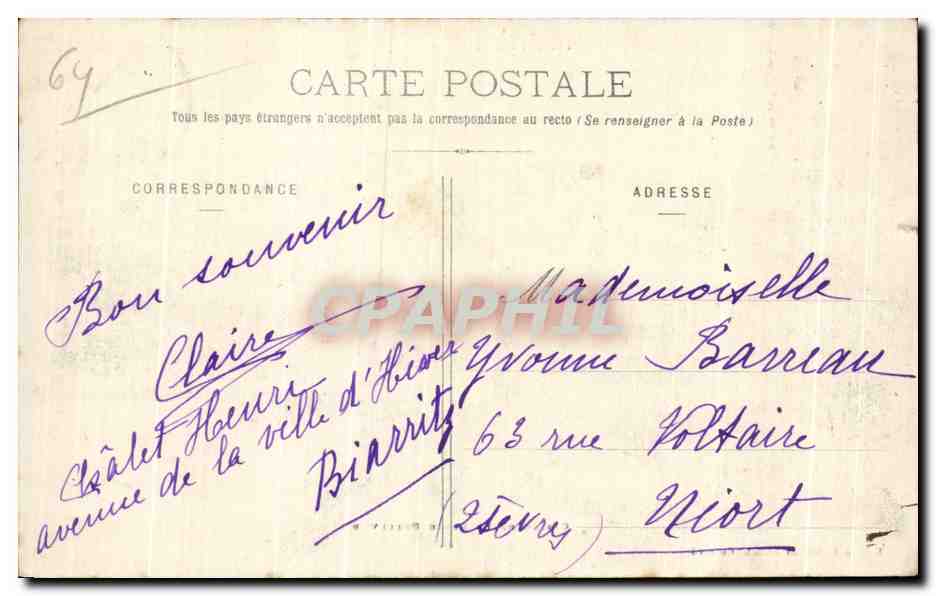 64
CARTE POSTALE
Tous les pays étrangers n'acceptent pas la correspondance au recto (Se renseigner à la Poste)
CORRESPONDANCE
Bon souvenir
Claire
Châlet Henri
avenue de la ville d'Hiver
Biarritz
ADRESSE
Mademoiselle
Yvonne Barreau
63 rue Voltaire
Niort
(2 Sèvres)
CPAPHIL